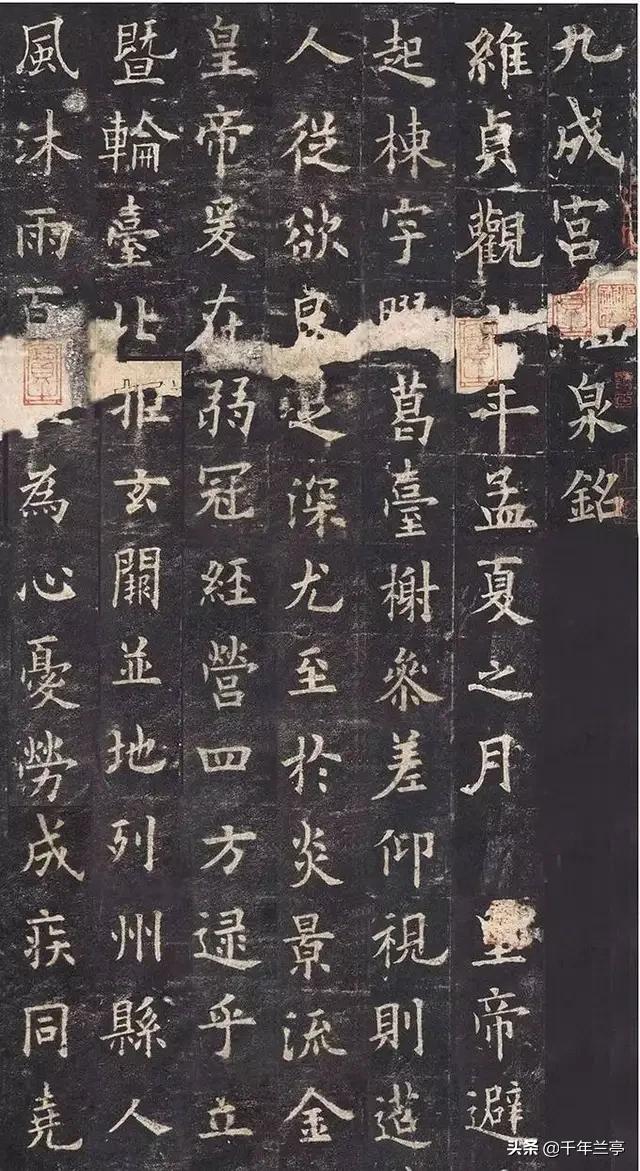 九成宮泉銘
維貞觀年孟夏之月 皇帝避
起棟宇葛臺榭參差仰視則迢
人從欲良足深尤至於炎景流金
皇帝爰在弱冠經營四方逯乎立
暨輪臺北拒玄闕並地列州縣人
風沐雨百為心憂勞成疾同堯
头条 @千年兰亭